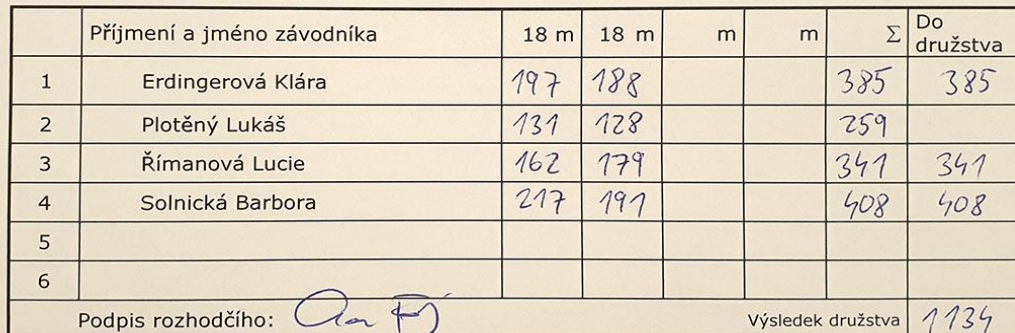 Příjmení a jméno závodníka 18 m 18 m m m Σ Do družstva
1 Erdingerová Klára 197 188 385 385
2 Plotěný Lukáš 131 128 259
3 Římanová Lucie 162 179 341 341
4 Solnická Barbora 217 191 408 408
5
6
Podpis rozhodčího: Výsledek družstva 1134